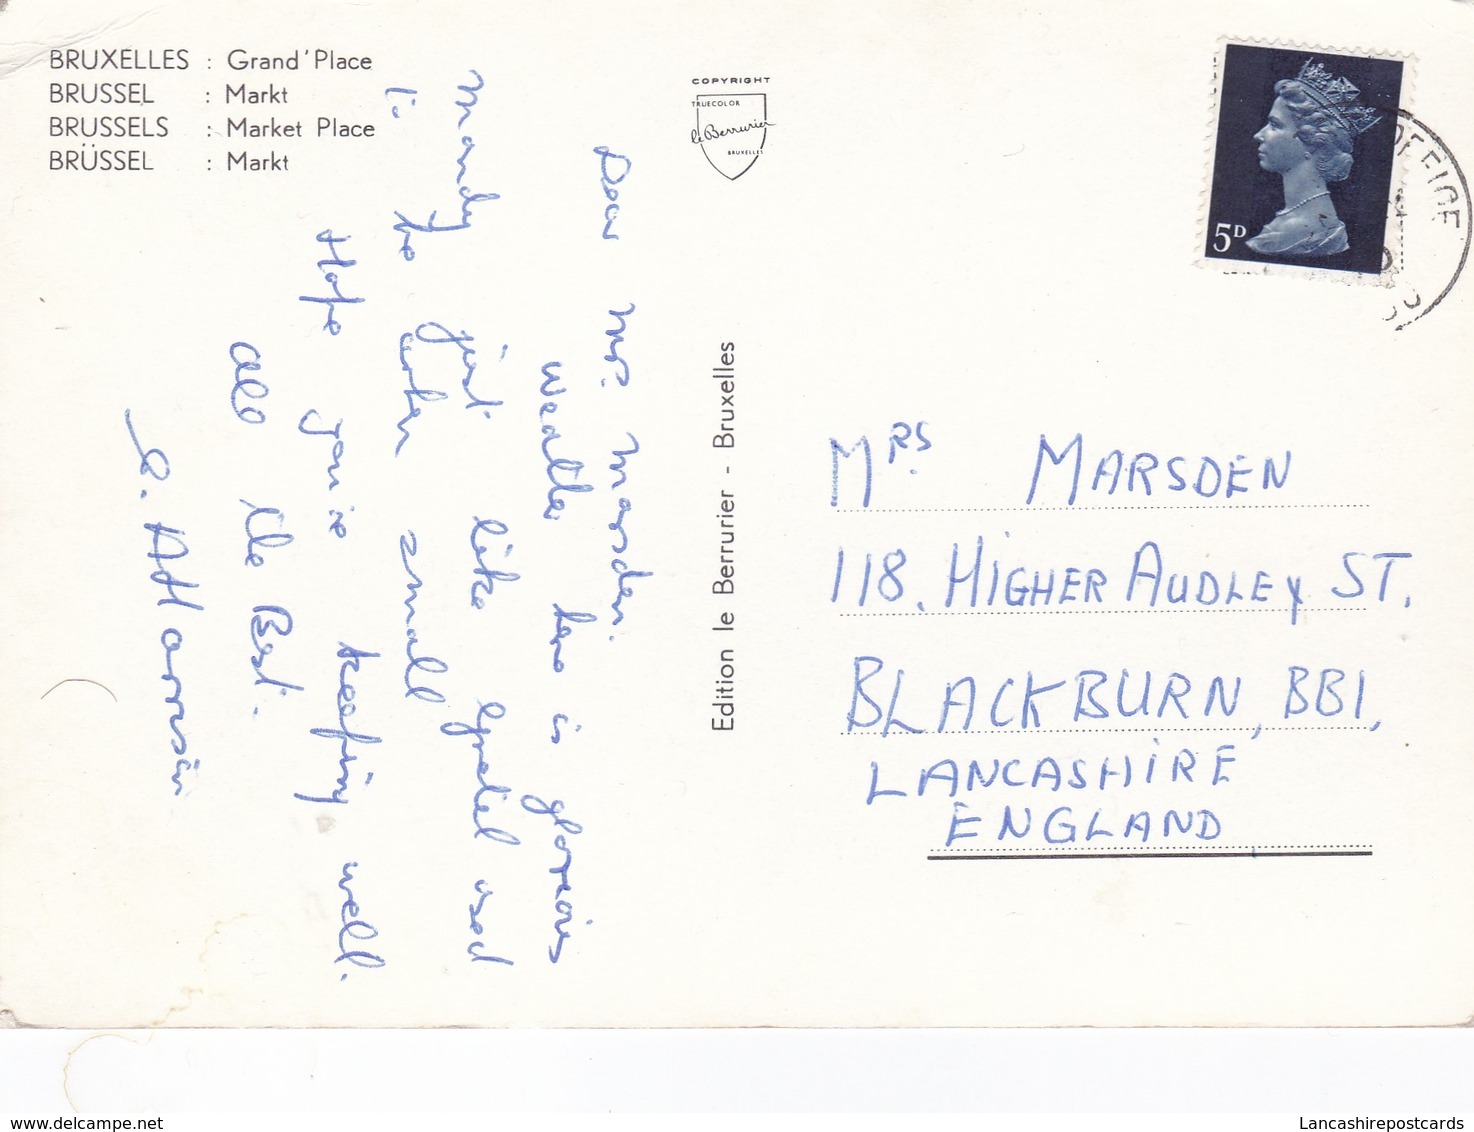 BRUXELLES : Grand'Place
BRUSSEL : Markt
BRUSSELS : Market Place
BRÜSSEL : Markt
COPYRIGHT
TRUECOLOR
le Berrurier
BRUXELLES
Edition le Berrurier - Bruxelles
5D
OFFICE
Dear Mrs. Marsden.
Weather here is glorious
Mandy just like Gretel used
to be when small
Hope you're keeping well.
All the Best.
MRS MARSDEN
118. HIGHER AUDLEY ST.
BLACKBURN, BB1,
LANCASHIRE
ENGLAND
Lancashirepostcards